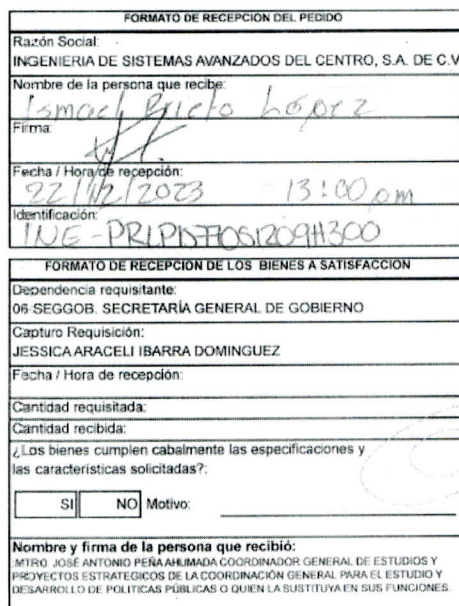 FORMATO DE RECEPCION DEL PEDIDO
Razón Social:
INGENIERIA DE SISTEMAS AVANZADOS DEL CENTRO, S.A. DE C.V
Nombre de la persona que recibe:
Ismael Prieto López
Firma:
Fecha / Hora de recepción:
22/12/2023 13:00 pm
Identificación:
INE -
FORMATO DE RECEPCION DE LOS BIENES A SATISFACCION
Dependencia requisitante:
06 SEGGOB. SECRETARÍA GENERAL DE GOBIERNO
Capturo Requisición:
JESSICA ARACELI IBARRA DOMINGUEZ
Fecha / Hora de recepción:
Cantidad requisitada:
Cantidad recibida:
¿Los bienes cumplen cabalmente las especificaciones y
las características solicitadas?:
SI NO Motivo:
Nombre y firma de la persona que recibió:
MTRO. JOSÉ ANTONIO PEÑA AHUMADA COORDINADOR GENERAL DE ESTUDIOS Y
PROYECTOS ESTRATEGICOS DE LA COORDINACIÓN GENERAL PARA EL ESTUDIO Y
DESARROLLO DE POLITICAS PÚBLICAS O QUIEN LA SUSTITUYA EN SUS FUNCIONES.